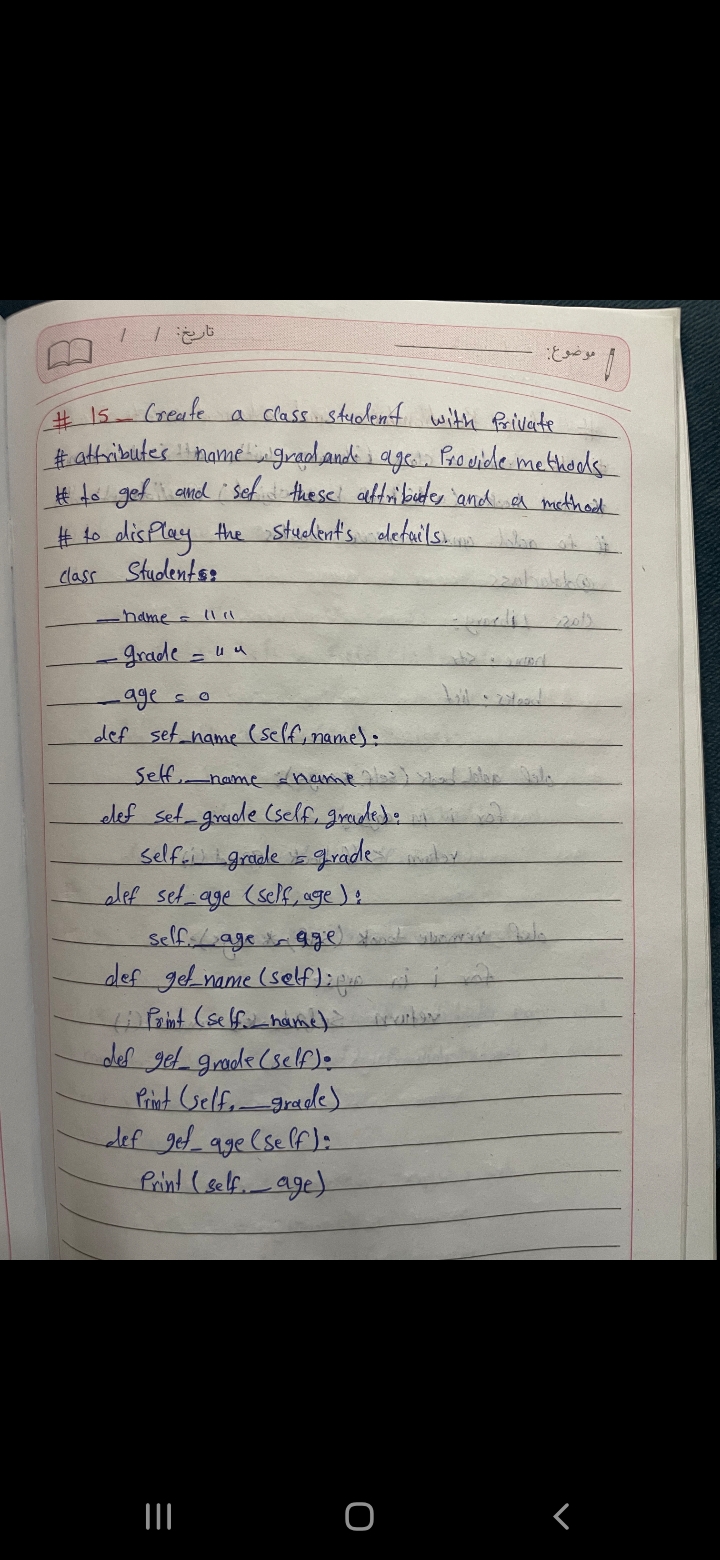 موضوع: تاریخ: / /
# 15 - Create a class student with Private
# attributes name, grad,and , age. Provide methods
# to get and set these attributes and a method
# to display the student's details.
class Students:
__name = ""
__grade = ""
__age = 0
def set_name (self, name):
self.__name = name
def set_grade (self, grade):
self.__grade = grade
def set_age (self, age):
self.__age = age
def get_name (self):
Print (self.__name)
def get_grade (self):
Print (self.__grade)
def get_age (self):
Print (self.__age)